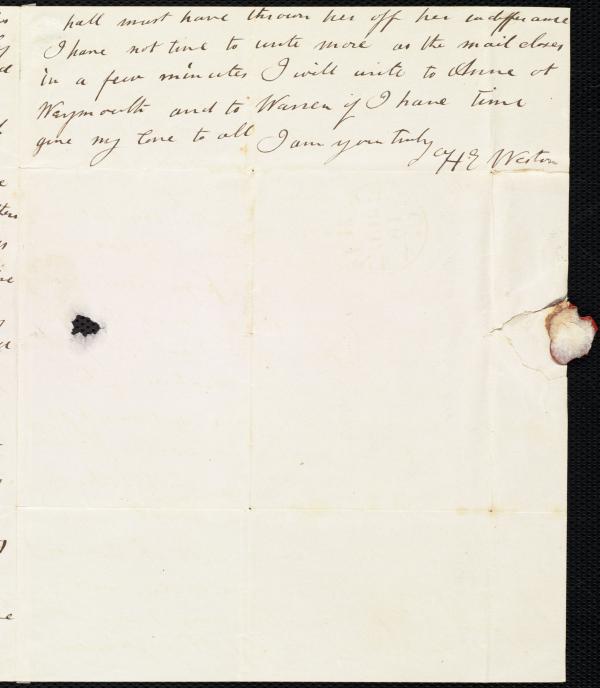 hall must have thrown her off her indifferance
I have not time to write more as the mail closes
in a few minutes I will write to Anne at
Waymouth and to Warren if I have time
give my love to all I am yours truly
H E Weston